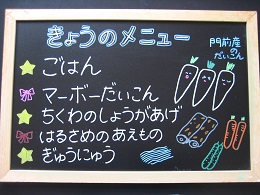 きょうのメニュー
門前産
の
だいこん
ごはん
マーボーだいこん
ちくわのしょうがあげ
はるさめのあえもの
ぎゅうにゅう